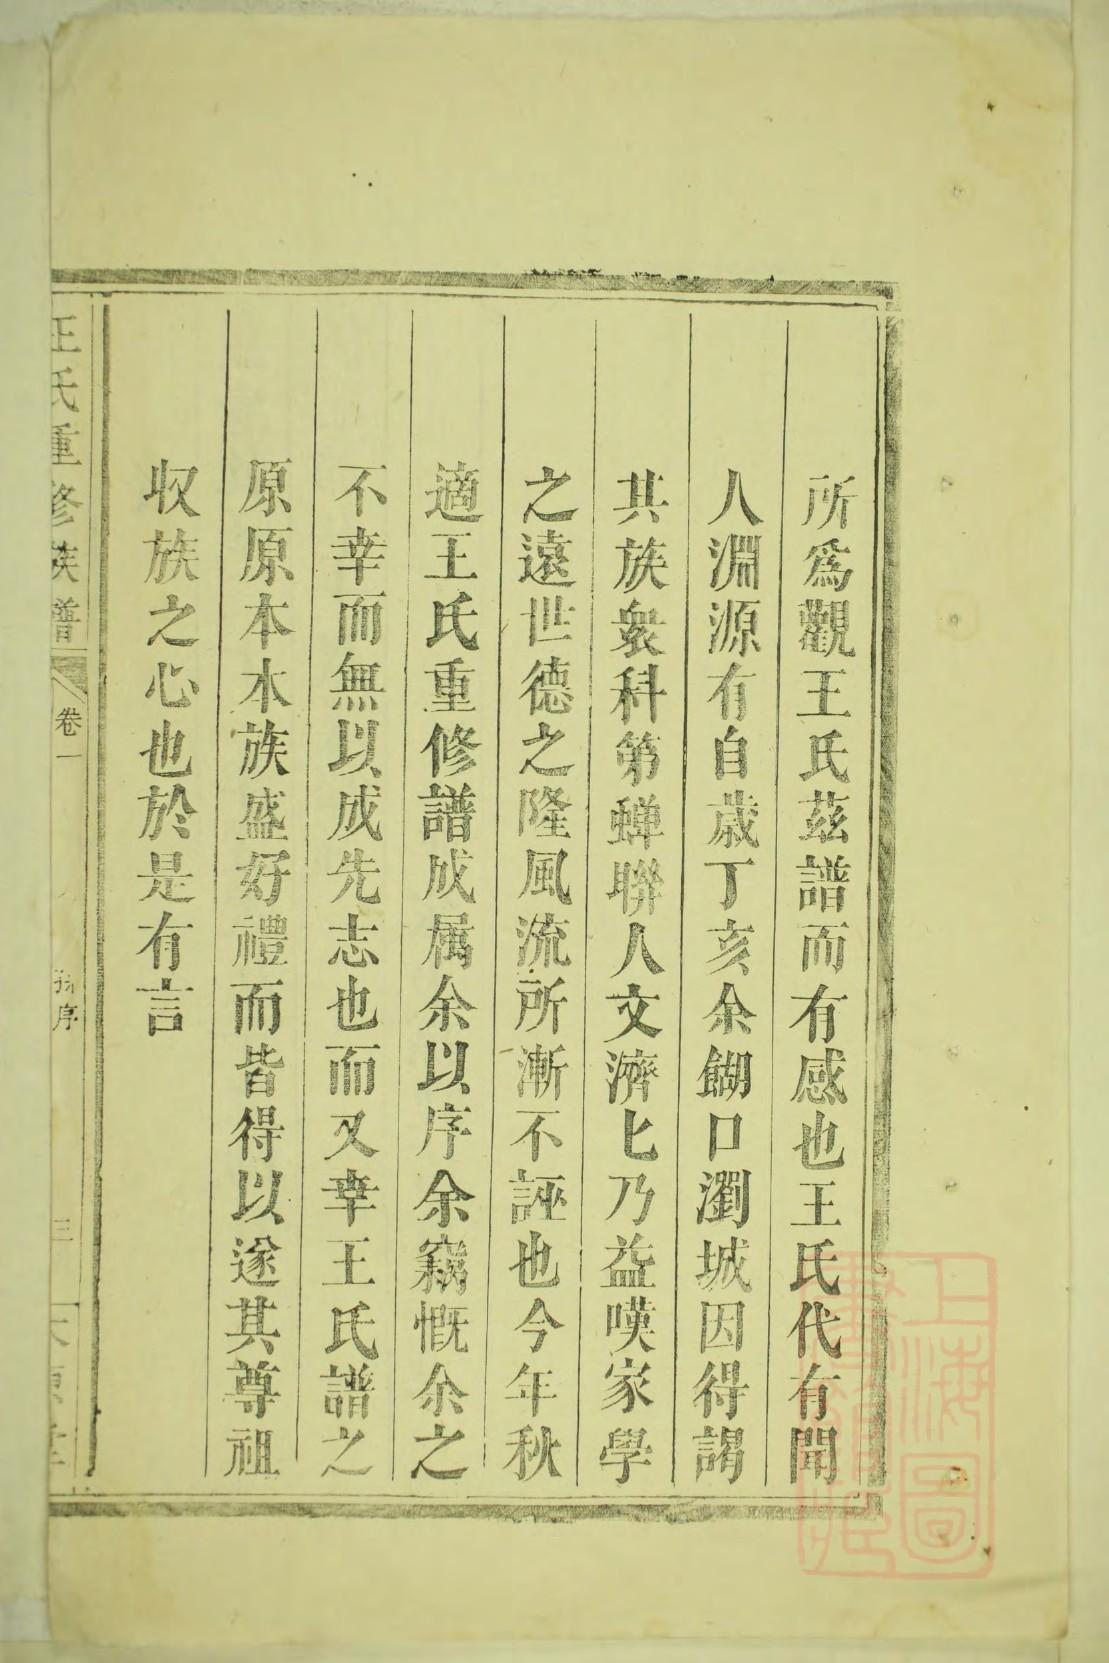 所爲觀王氏茲譜而有感也王氏代有聞
人淵源有自歲丁亥余餬口瀏城因得謁
其族衆科第蟬聯人文濟匕乃益嘆家學
之遠世德之隆風流所漸不誣也今年秋
適王氏重修譜成属余以序余竊慨余之
不幸而無以成先志也而又幸王氏譜之
原原本本族盛好禮而皆得以遂其尊祖
収族之心也於是有言
王氏重修族譜
卷一
序
三
上海圖
書館藏